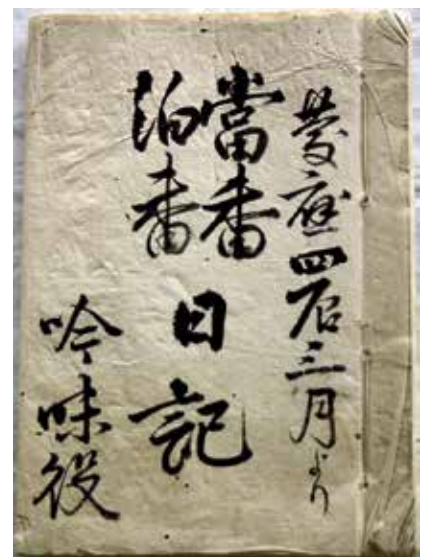 慶應四辰三月より
當番
泊番
日記
吟味役